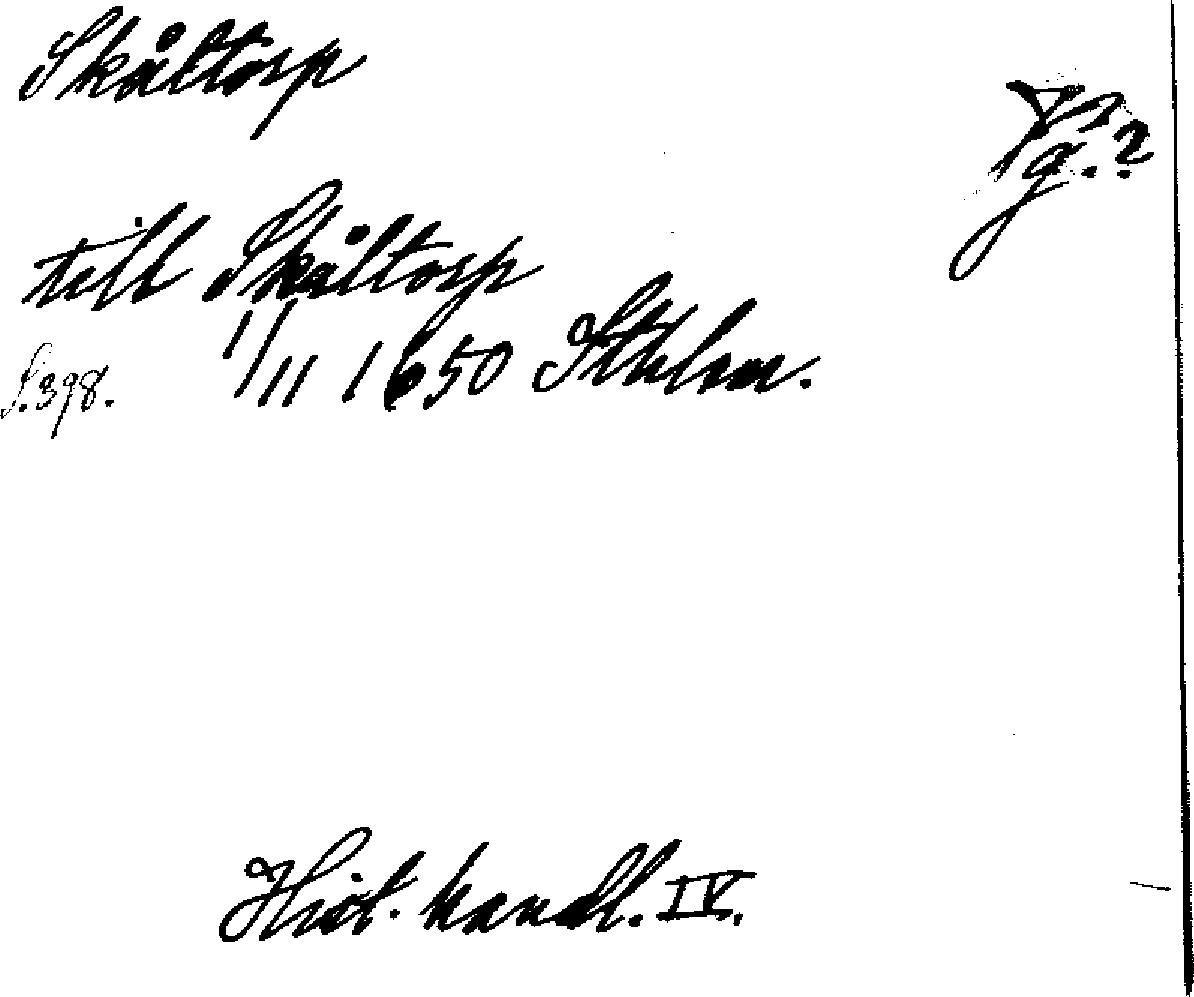 Skåltorp
Vg.?
till Skåltorp
1/11 1650 Sthlm.
S. 398.
Hist. handl. IV.